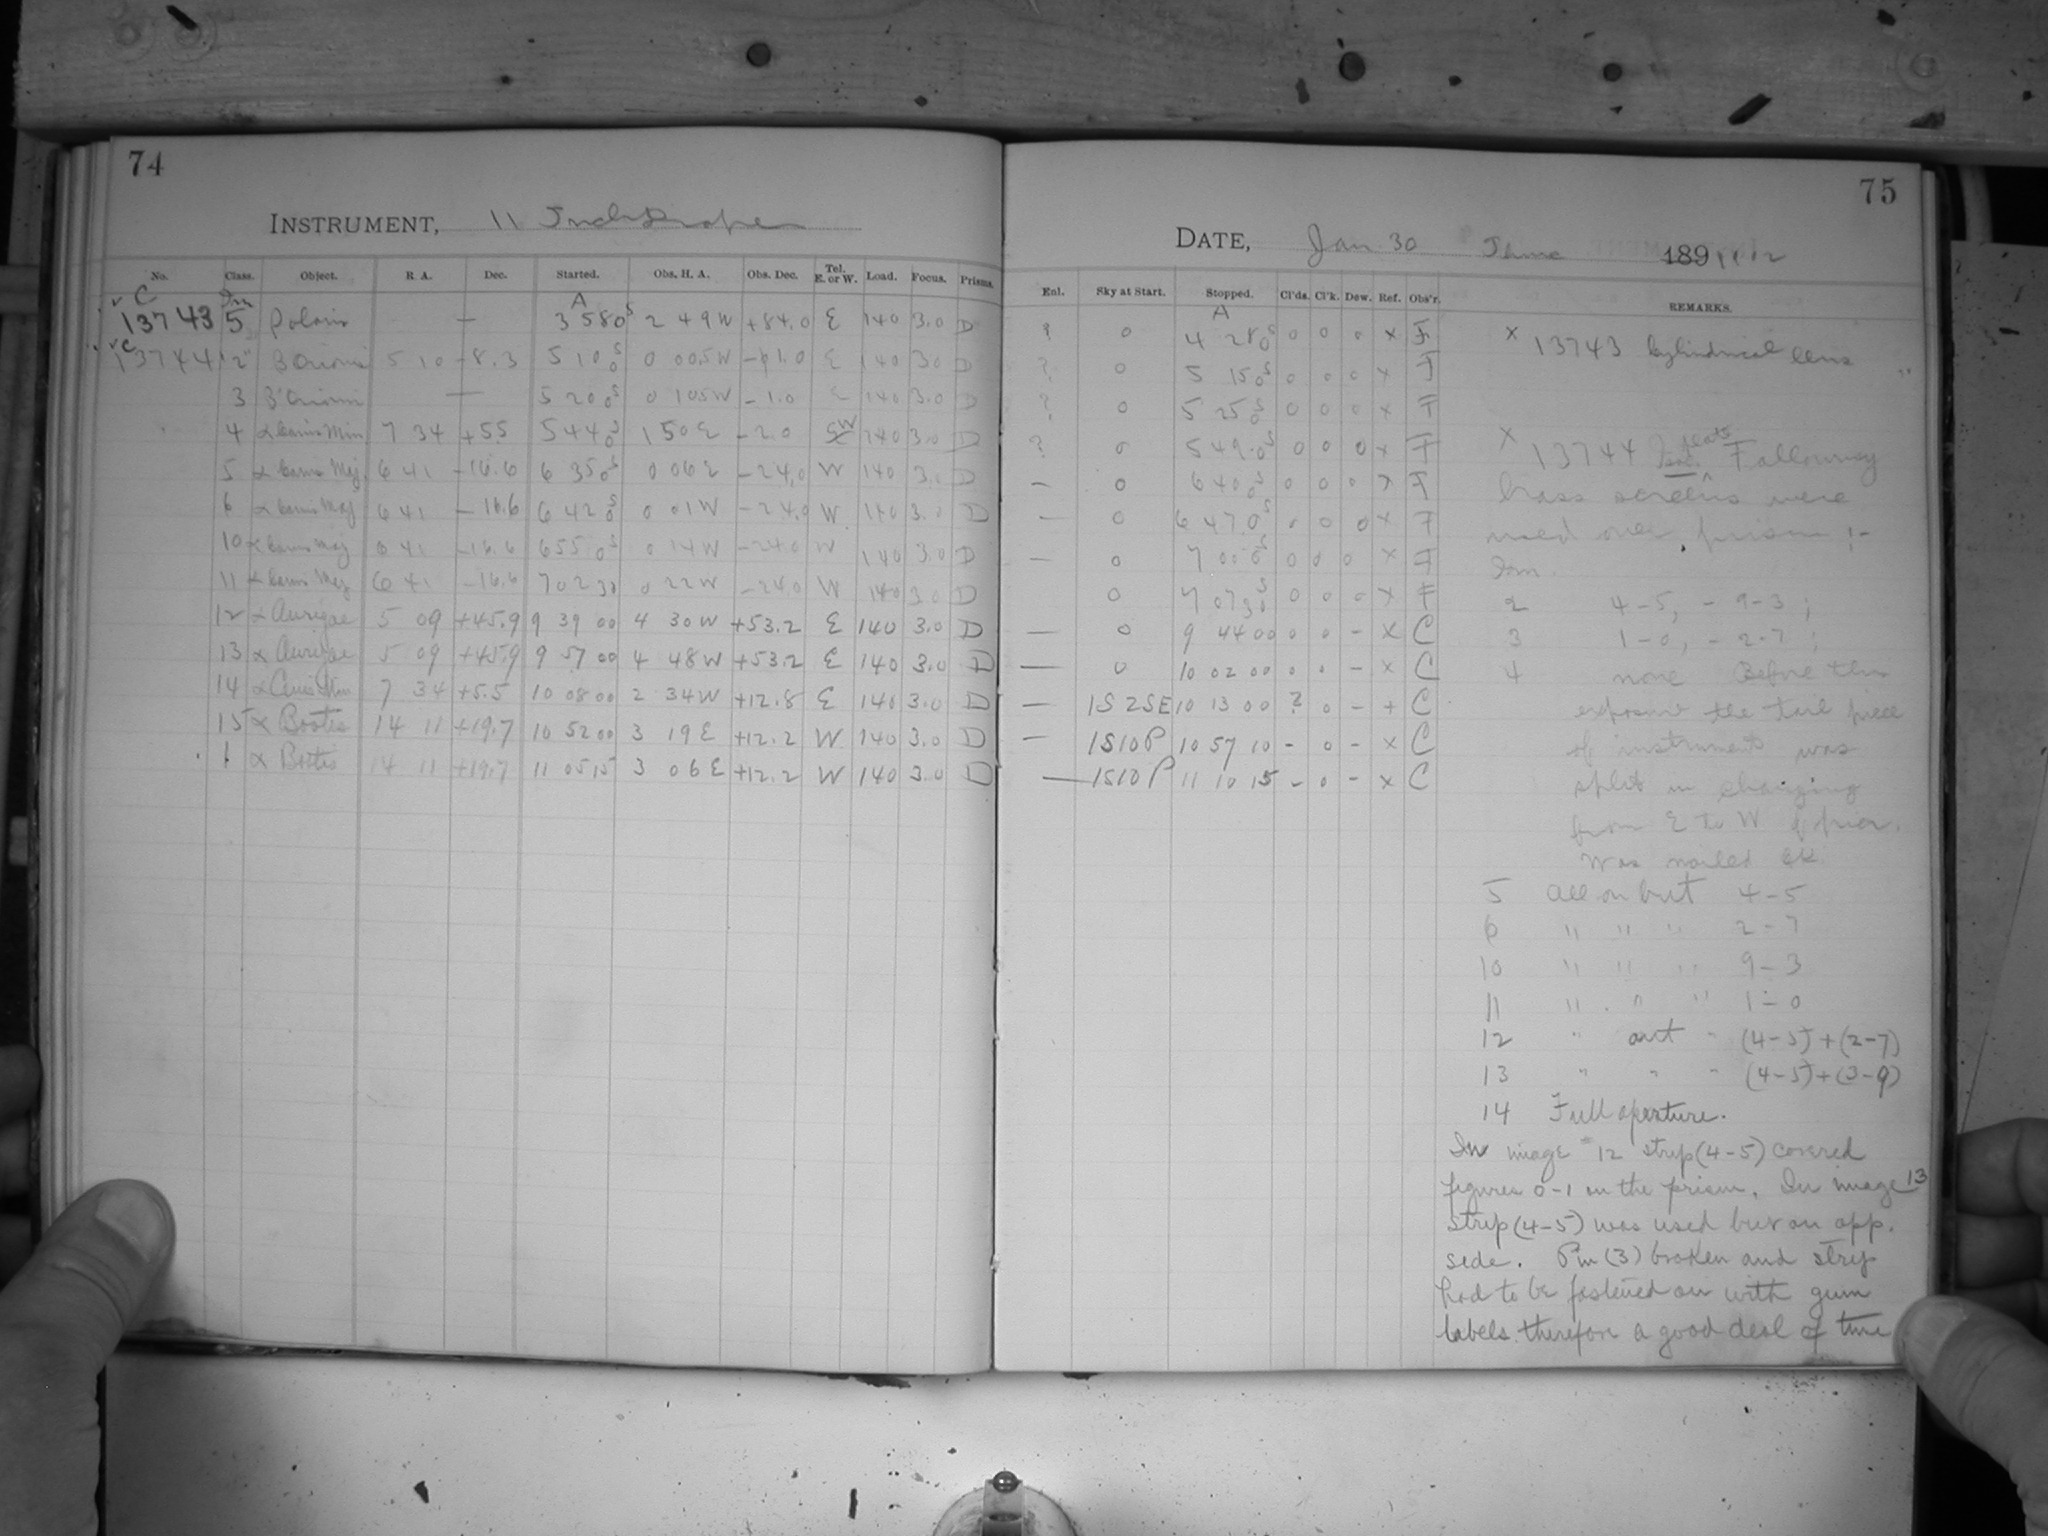 74
INSTRUMENT, 11 Inch Draper
No. Class. Object. R. A. Dec. Started. Obs. H. A. Obs. Dec. Tel. E. or W. Load. Focus. Prisms.
C Im A
13743 5 Polaris — 3 58 0 S 2 49 W +84.0 E 140 3.0 D
C
13744 2 β Orionis 5 10 -8.3 5 10 0 S 0 005W E 140 3.0 D
3 β Orionis — 5 20 0 S 0 105W -1.0 E 140 3.0 D
4 α Canis Min 7 34 +55 5 44 0 S 1 50 E -2.0 W 140 3.0 D
5 α Canis Maj. 6 41 -16.6 6 35 0 S 0 06 E -24.0 W 140 3.0 D
6 α Canis Maj 6 41 -16.6 6 42 0 S 0 01 W -24.0 W. 140 3.0 D
10 α Canis Maj 6 41 -16.6 6 55 0 S 0 14 W -24.0 W 140 3.0 D
11 α Canis Maj 6 41 -16.6 7 02 30 0 22 W -24.0 W 140 3.0 D
12 α Aurigae 5 09 +45.9 9 39 00 4 30 W +53.2 E 140 3.0 D
13 α Aurigae 5 09 +45.9 9 57 00 4 48 W +53.2 E 140 3.0 D
14 α Canis Min 7 34 +5.5 10 08 00 2 34 W +12.8 E 140 3.0 D
15 α Bootis 14 11 +19.7 10 52 00 3 19 E +12.2 W 140 3.0 D
1 α Bootis 14 11 +19.7 11 05 15 3 06 E +12.2 W 140 3.0 D
75
DATE, Jan 30 189
Enl. Sky at Start. Stopped. Cl'ds. Cl'k. Dew. Ref. Obs'r. REMARKS.
A
? 0 4 28 0 S 0 0 0 x F
? 0 5 15 0 S 0 0 0 x F
? 0 5 25 0 S 0 0 0 x F
? 0 5 49 0 S 0 0 0 x F
— 0 6 40 0 S 0 0 0 x F
— 0 6 47 0 S 0 0 0 x F
— 0 7 00 0 S 0 0 0 x F
0 7 07 30 S 0 0 0 x F
— 0 9 44 00 0 0 - x C
— 0 10 02 00 0 0 - x C
— 1S 2SE 10 13 00 ? 0 - + C
— 1S10P 10 57 10 - 0 - x C
— 1S10P 11 10 15 - 0 - x C
x 13743 Cylindrical lens
x 13744 Following
brass screens were
used over prism :-
Im.
2 4-5, - 9-3 ;
3 1-0, - 2-7 ;
4 none Before this
exposure the tail piece
of instrument was
split in changing
from E to W of pier.
Was nailed OK
5 All on but 4-5
6 " " " 2-7
10 " " " 9-3
11 " " " 1-0
12 " out " (4-5)+(2-7)
13 " " " (4-5)+(3-9)
14 Full aperture.
In image # 12 strip (4-5) covered
figures 0-1 on the prism. In image 13
strip (4-5) was used but on opp.
side. Pin (3) broken and strip
had to be fastened on with gum
labels. therefore a good deal of time